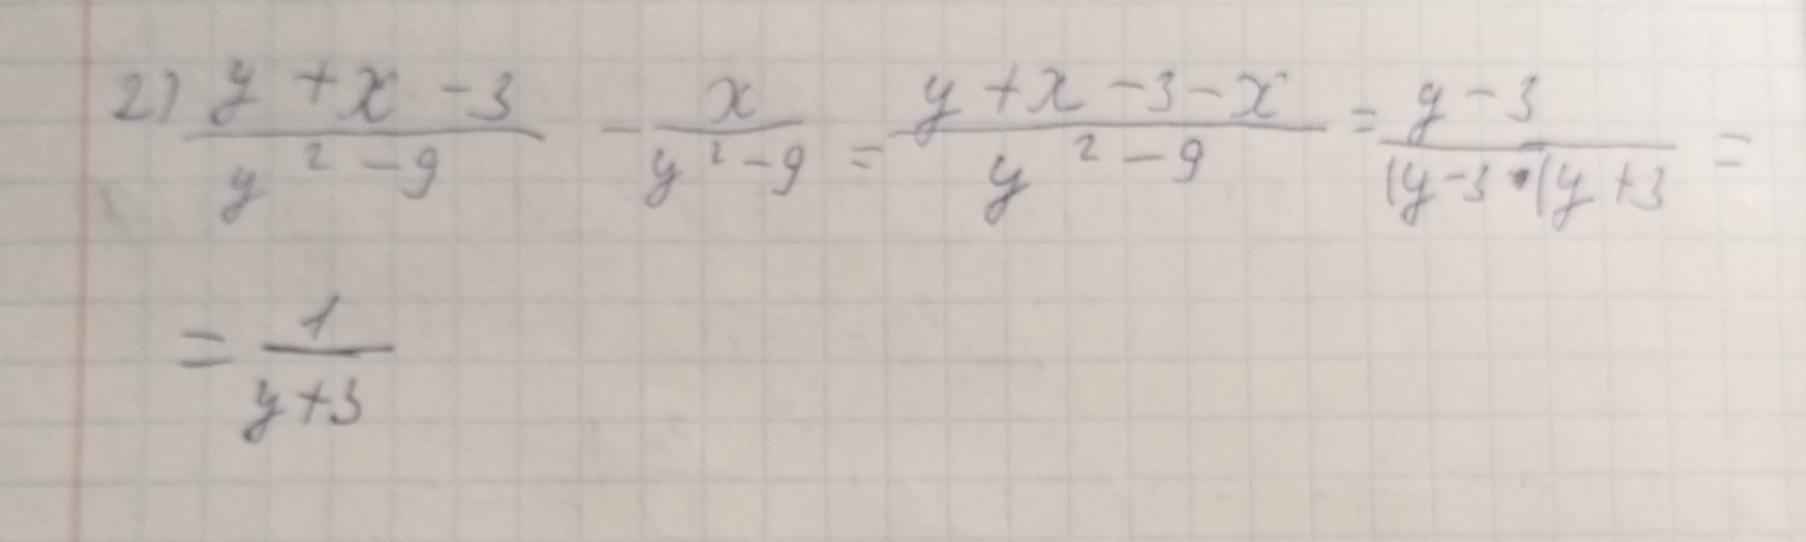 2) \frac{y + x - 3}{y^2 - 9} - \frac{x}{y^2 - 9} = \frac{y + x - 3 - x}{y^2 - 9} = \frac{y - 3}{(y - 3 \cdot (y + 3} =
= \frac{1}{y + 3}